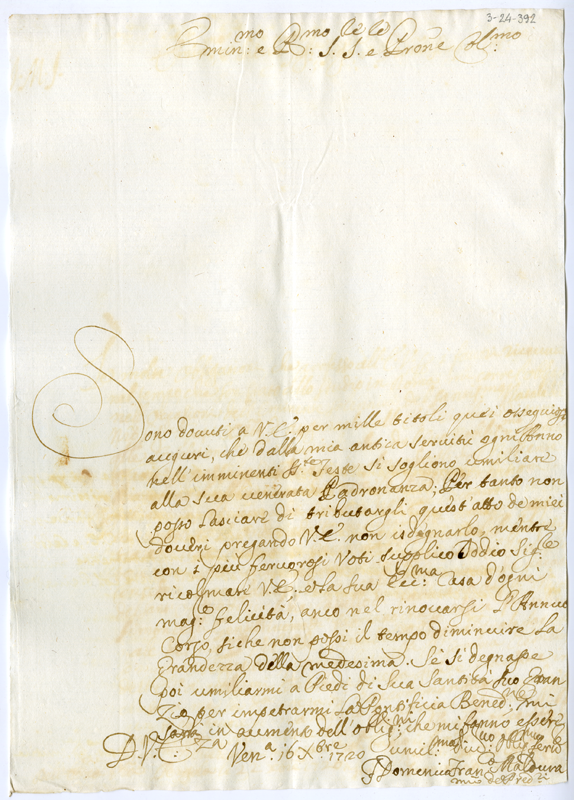 3-24-392
Emin:mo e R:mo S.re S.re e Prone Col:mo
Sono dovuti a V.E. per mille titoli quei ossequiosi
auguri, che dalla mia antica servitù ogni Anno
nell'imminenti S.te Feste si sogliono umiliare
alla sua venerata Padronanza; Per tanto non
posso lasciare di tributargli quest'atto de miei
doveri pregando V.E. non isdegnarlo, mentre
con i più fervorosi Voti supplico Iddio Sig.re
ricolmare V.E. e la sua Ecc:ma Casa d'ogni
mag.r felicità, anco nel rinovarsi l'Annuo
Corso, siche non possi il tempo diminuire la
Grandezza della medesima. Se si degnasse
poi umiliarmi a Piedi di Sua Santità suo
Zio per impetrarmi la Pontificia Bened:ne mi
sarà in aumento dell'oblig:ni che mi fanno essere
D.V.E.za
Ven.a 16 Xbre 1720
Domenico Fran.co Maldura